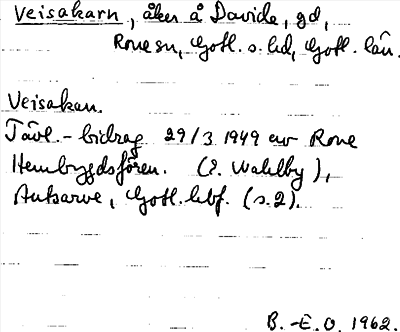 Veisakarn, åker å Davide, gd,
Rone sn, Gotl. s. hd, Gotl. län.
Veisakan.
Tävl.-bidrag 29/3 1949 av Rone
Hembygdsfören. (E. Wahlby),
Autsarve, Gotl. hbf. (s. 2).
B.-E. O. 1962.